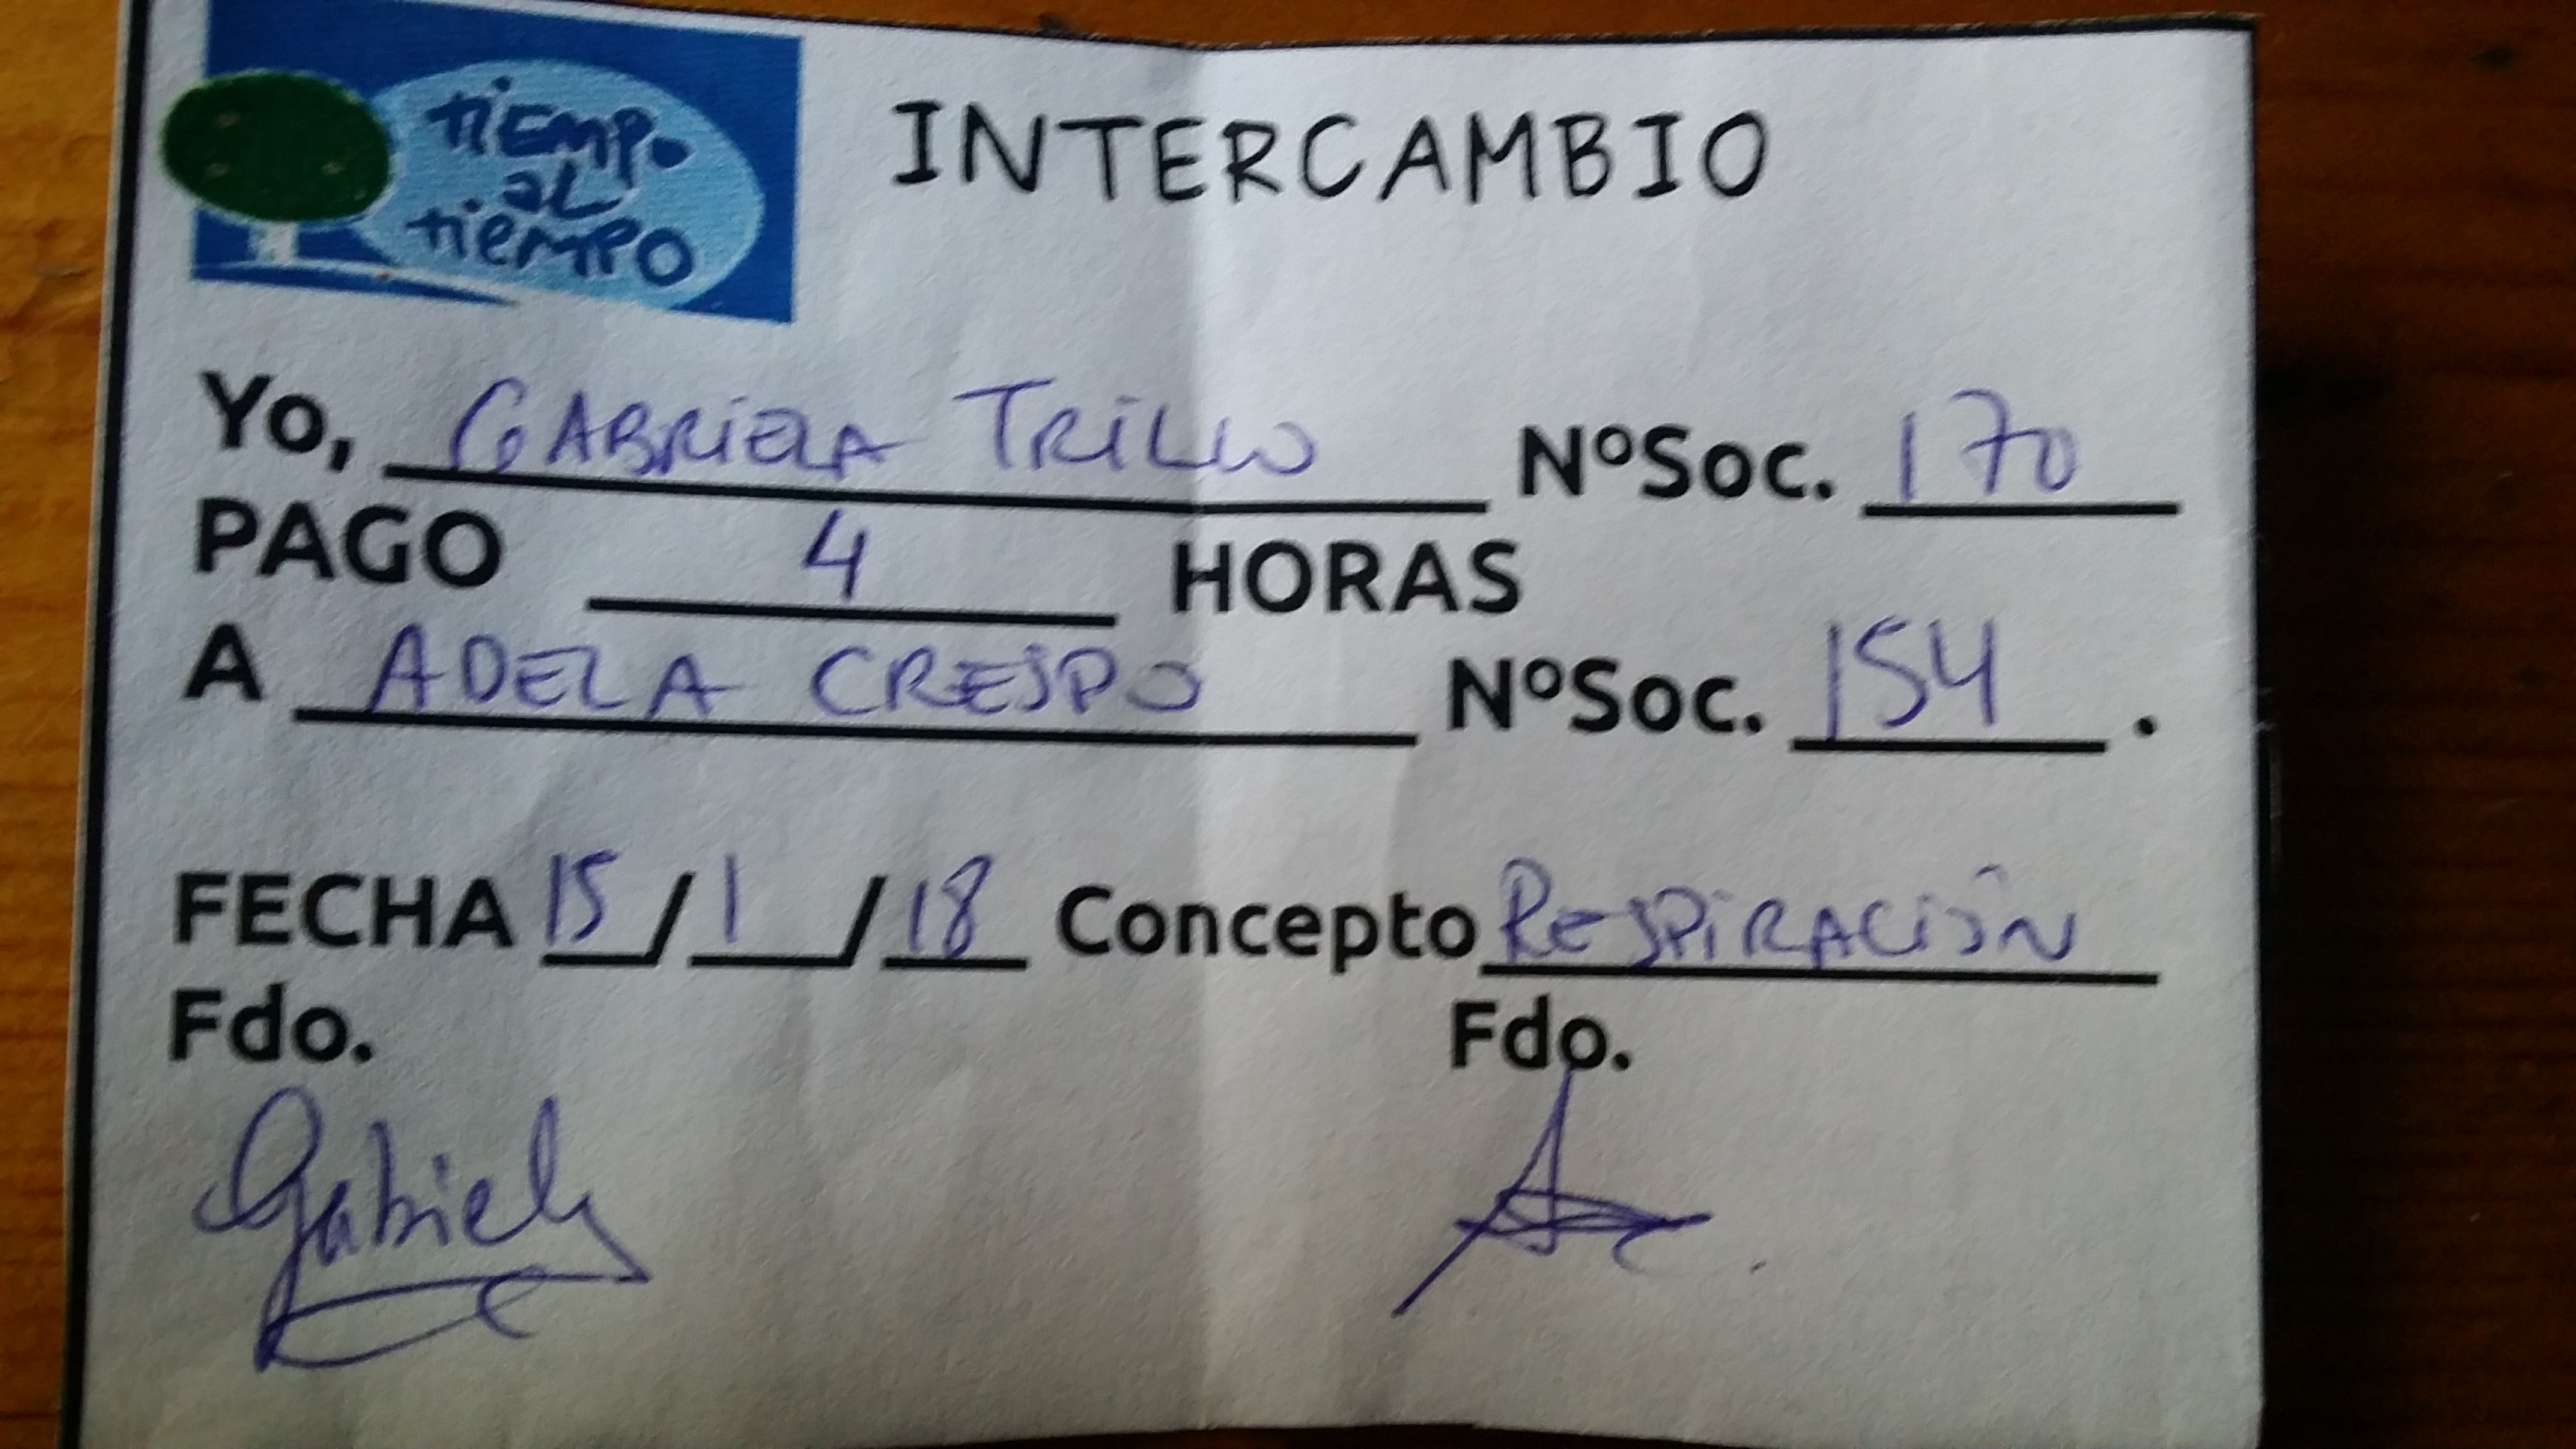 tiempo
al
tiempo
INTERCAMBIO
Yo, GABRIELA TRILLO NºSoc. 170
PAGO 4 HORAS
A ADELA CRESPO NºSoc. 154 .
FECHA 15/1/18 Concepto RESPIRACIÓN
Fdo. Fdo.
Gabriela